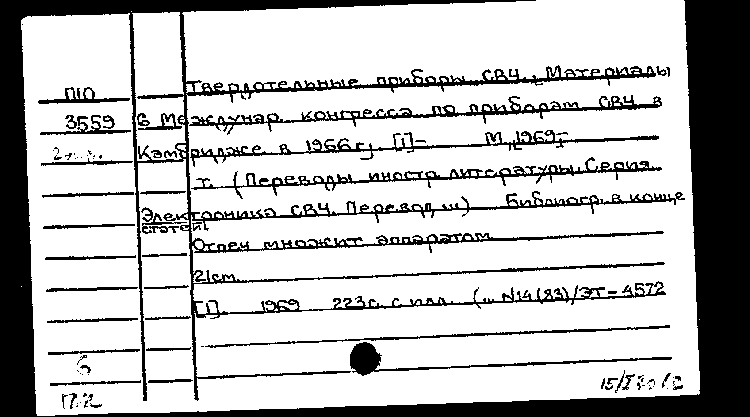 П10 Твердотельные приборы СВЧ. Материалы
3559 6 Междунар. конгресса по приборам СВЧ в
Кембридже в 1966 г. [1]- М., 1969-
т. (Переводы иностр. литературы. Серия
Электроника СВЧ. Перевод ...) Библиогр. в конце
статей.
Отпеч. множит. аппаратом
21см.
[1]. 1969 223с. с илл. (... N14(83)/ЭТ-4572
6
П.2